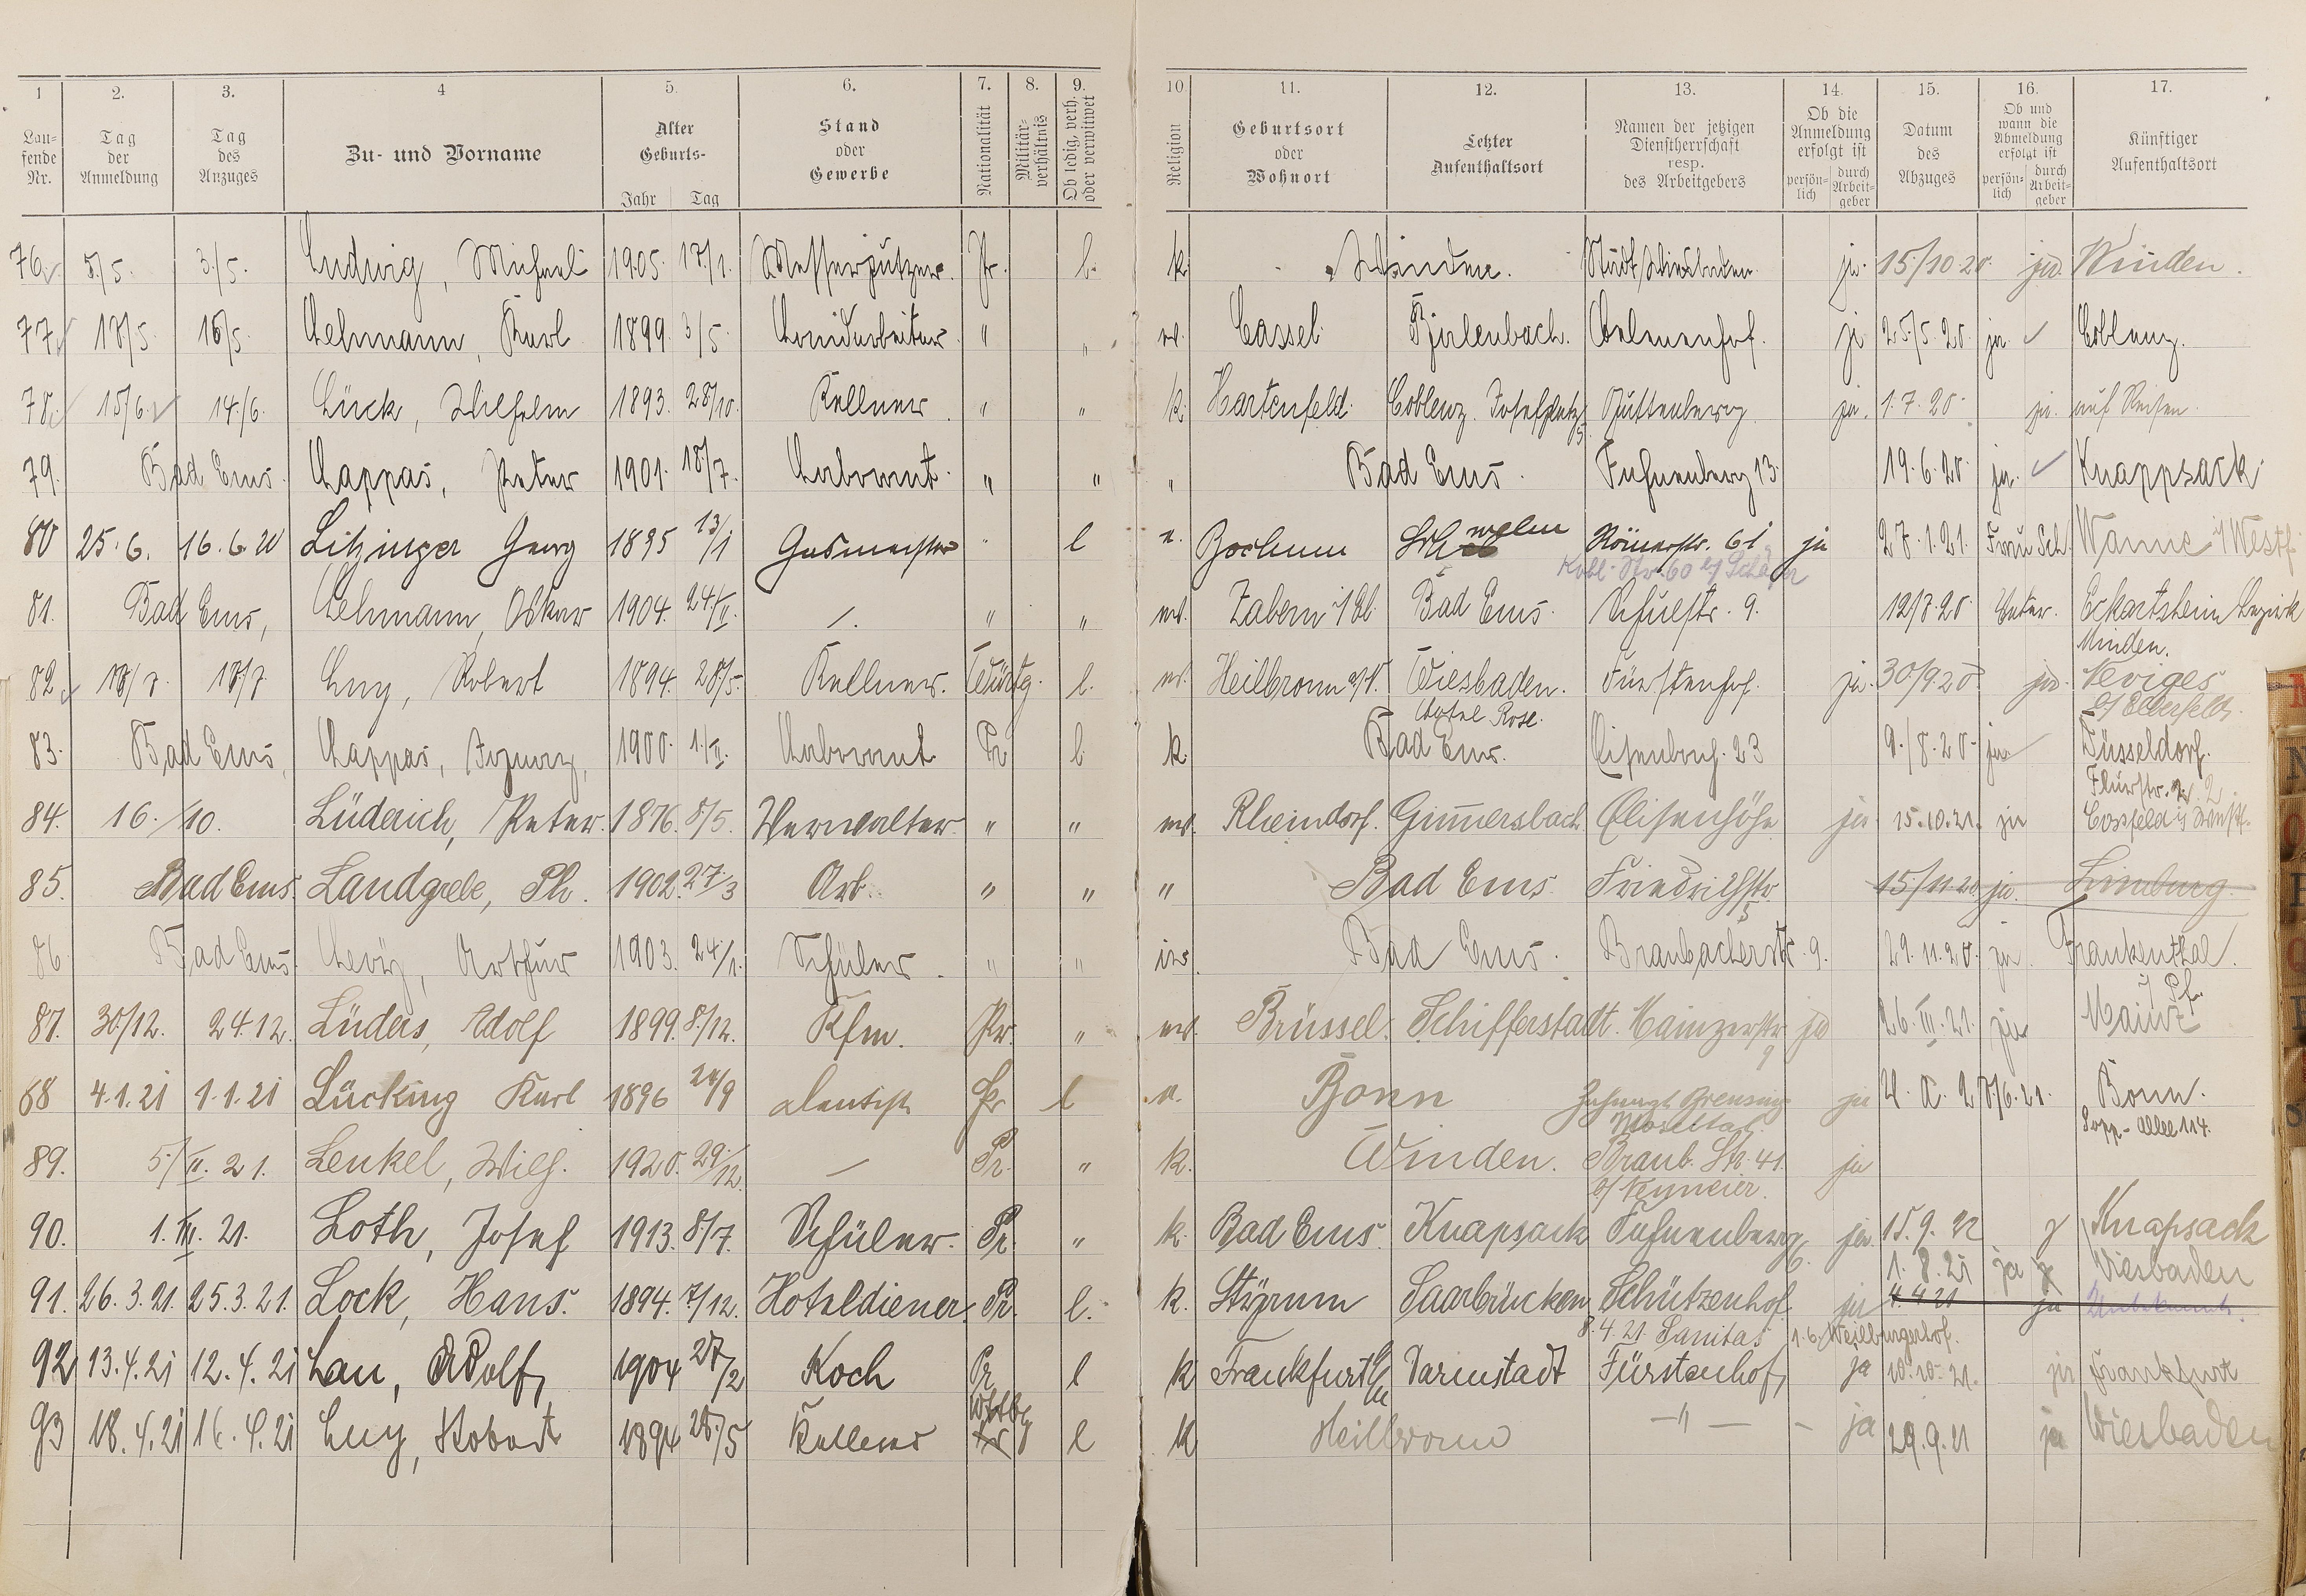 1 2. 3. 4 5. 6. 7. 8. 9. 10 11. 12. 13. 14. 15. 16. 17.
Lau-fende Nr. Tag der Anmeldung Tag des Anzuges Zu- und Vorname Alter Geburts- Jahr Tag Stand oder Gewerbe Nationalität Militär-verhältnis Ob ledig, verh. oder verwitwet Religion Geburtsort oder Wohnort Letzter Aufenthaltsort Namen der jetzigen Dienstherrschaft resp. des Arbeitgebers Ob die Anmeldung erfolgt ist persön-lich durch Arbeit-geber Datum des Abzuges Ob und wann die Abmeldung erfolgt ist persön-lich durch Arbeit-geber Künftiger Aufenthaltsort
76 5/5. 3./5. Ludwig, Michael 1905. 17/1. Messerputzer. Pr. l. k. Winden. Stadt Wiesbaden ja. 15/10 20. ja. Winden.
77. 18/5. 16/5. Lehmann, Karl 1899. 3/5. Landarbeiter. " " ev. Cassel. Birlenbach. ja 25/5. 20. ja. ✓ Coblenz.
78. 15/6. ✓ 14./6. Lück, Wilhelm 1893. 28/10. Kellner. " " k. Hartenfeld. Coblenz. Josefplatz 5 Guttenberg ja. 1. 7. 20. ja. auf Reisen.
79. Bad Ems. Lappas, Peter 1901. 18/7. Laborant. " " " Bad Ems. Fahnenberg 13. 19. 6. 20. ja. ✓ Knappsack.
80 25. 6. 16. 6. 20 Litzinger Georg 1895 13/1 Gasmeister " l e. Bochum Schwelm Römerstr. 61 ja 27. 1. 21. Frau Sch. Wanne i/Westf.
Kobl. Str. 60 b/ Schäfer
81. Bad Ems, Lehmann, Oskar 1904. 24./II. /. " " ev. Zabern i/Els. Bad Ems. Schulstr. 9. 12/7. 20. Vater. Eckartsheim Bezirk
Minden.
82 ✓ 18/7. 18/7. Luy, Robert 1894. 28/5. Kellner. Württg. l. ev. Heilbronn a/N. Wiesbaden. Fürstenhof. ja. 30/9. 20 ja. Neviges
Hotel Rose. b/ Elberfeld.
83. Bad Ems, Lappas, Ignaz, 1900. 1./II. Laborant Pr l. k. Bad Ems. Eisenbach. 23 9./8. 20. ja Düsseldorf.
Flurstr. 2
84. 16./10. Lüderich, Peter. 1876. 8/5. Verwalter. " " ev. Rheindorf. Gimmersbach Elisenhöhe ja 15. 10. 21. ja Cosfeld i/ Westf.
85. Bad Ems. Landgrebe, Ph. 1902. 27./3 Arb. " " " Bad Ems. Friedrichstr. 5 15/11 20 ja. Limburg.
86 Bad Ems. Levy, Arthur 1903. 24/1. Schüler. " " isr. Bad Ems. Braubacherstr. 9. 29. 11. 20. ja. Frankenthal.
i/ Pf.
87. 30/12. 24. 12. Lüders, Adolf 1899. 8./12. Kfm. Pr. " ev. Brüssel. Schifferstadt. Mainzerstr. 9 ja 26. III. 21. ja Mainz
88 4. 1. 21 1. 1. 21 Lücking Karl 1896 /9 Dentist Pr l e. Bonn Zahnarzt Grensing ja 6. 21. Bonn.
Moseltal Popp. Allee 114.
89. 5./II. 21. Lenkel, Wilh. 1920. 29./12. / Pr. " k. Winden. Braub. Str. 41. ja
b/ Neymeier.
90. 1. III. 21. Loth, Josef 1913. 8./7. Schüler. Pr. " k. Bad Ems. Knapsack Fahnenberg 6. ja. 15. 9. 22 Knapsack
1. 8. 21 ja Wiesbaden
91. 26. 3. 21. 25. 3. 21. Lock, Hans. 1894. 7/12. Hoteldiener. Pr. l. k. Styrum Saarbrücken Schützenhof ja 4. 4 21 ja Unbekannt.
8. 4. 21. Sanitas 1. 6. Weilburgerhof.
92 13. 4. 21 12. 4. 21 Lau, Adolf, 1904 27/2 Koch Pr l k Frankfurt a/M Darmstadt Fürstenhof, ja 10. 10. 21. ja Frankfurt
93 18. 4. 21 16. 4. 21 Luy, Robert 1894 28/5 Kellner Wttbg Pr l k Heilbronn — " — - ja 29. 9. 21 ja Wiesbaden